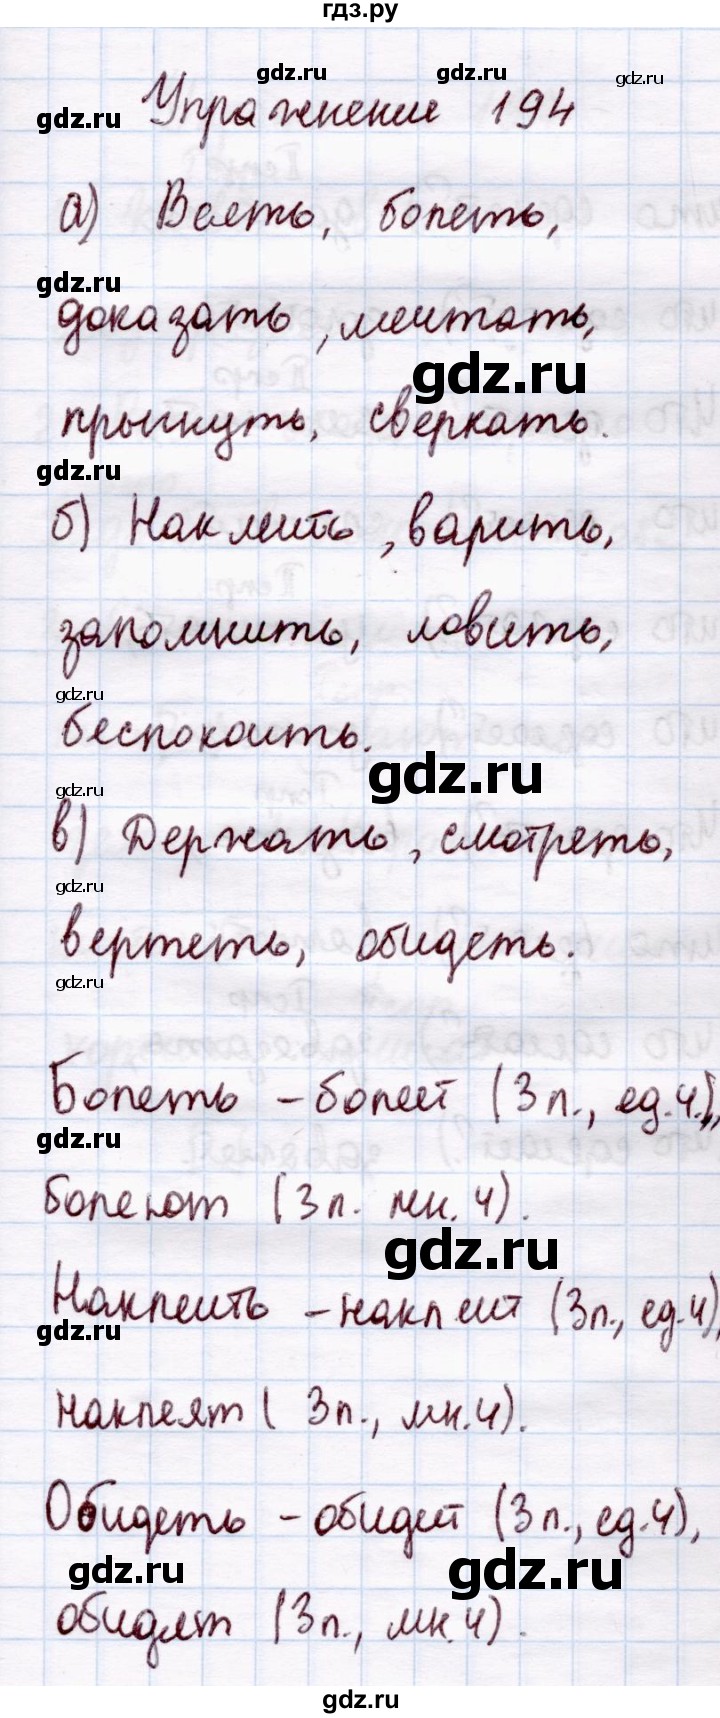 гдз.ру
gdz.ru gdz.ru gdz.ru
gdz.ru Упражнение 194
а) Веять, болеть,
gdz.ru
доказать, мечтать,
gdz.ru
прыгнуть, сверкать.
gdz.ru
б) Наклеить, варить,
запомнить, ловить,
gdz.ru
беспокоить.
gdz.ru
gdz.ru
в) Держать, смотреть,
gdz.ru
вертеть, обидеть.
gdz.ru
Болеть – болеет (3 л., ед.ч.),
gdz.ru
болеют (3 л. мн.ч).
gdz.ru
Наклеить – наклеит (3 л., ед.ч),
gdz.ru
наклеят ( 3 л., мн.ч).
Обидеть – обидит (3 л., ед.ч),
gdz.ru gdz.ru
обидят (3 л., мн.ч).
gdz.ru